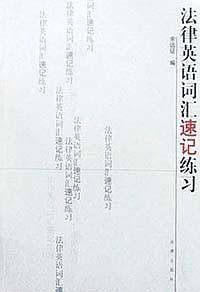 法律英语词汇速记练习
宋远征 编
法律英语词汇速记练习
法律英语词汇速记练习
法律英语词汇速记练习
法律英语词汇速记练习
法律英语词汇速记练习
法律英语词汇速记练习
法律出版社